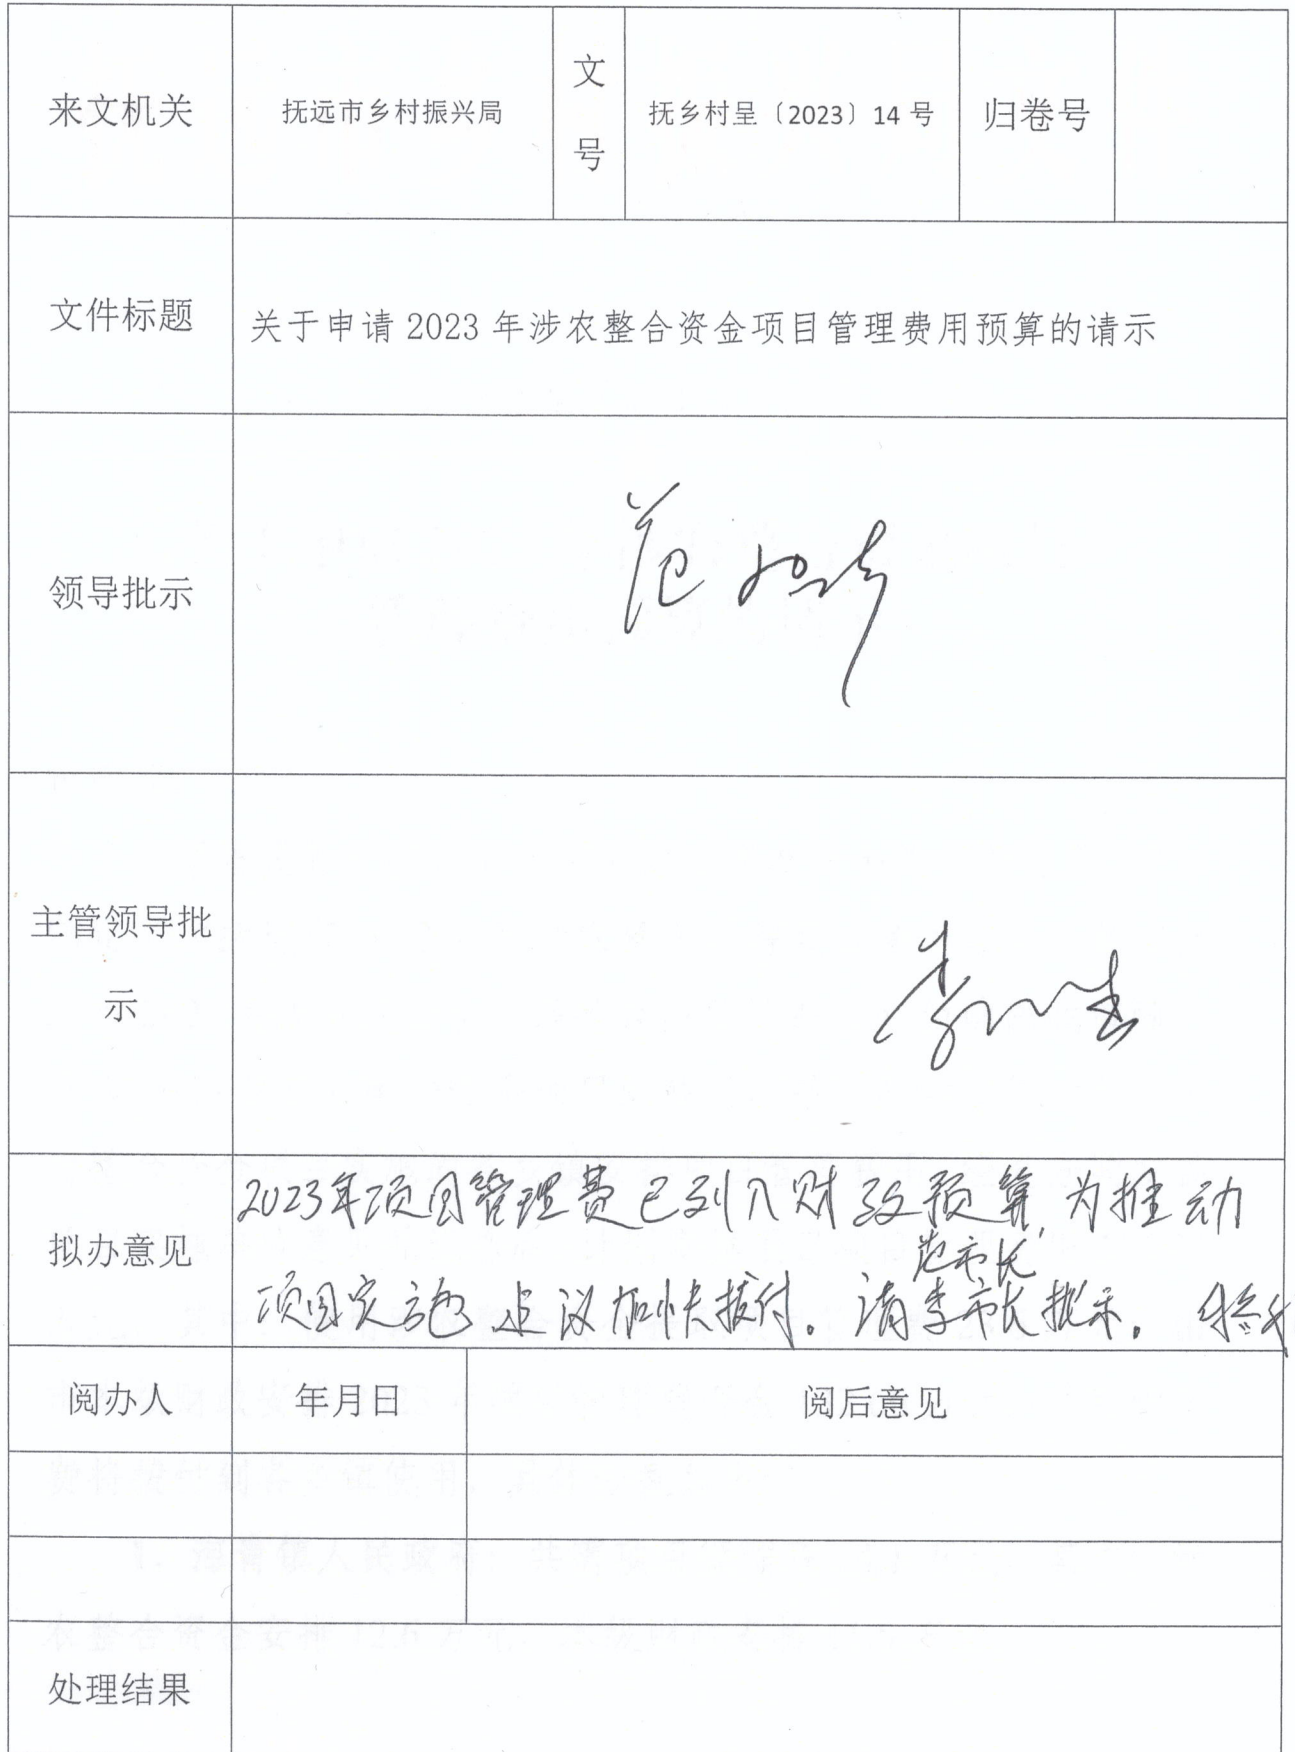 来文机关 抚远市乡村振兴局 文号 抚乡村呈〔2023〕14 号 归卷号
文件标题 关于申请 2023 年涉农整合资金项目管理费用预算的请示
领导批示 范
主管领导批
示 李
拟办意见
2023年项目管理费已列入财政预算,为推动
范市长
项目实施建议加快拨付。请李市长批示。
阅办人 年月日 阅后意见
处理结果